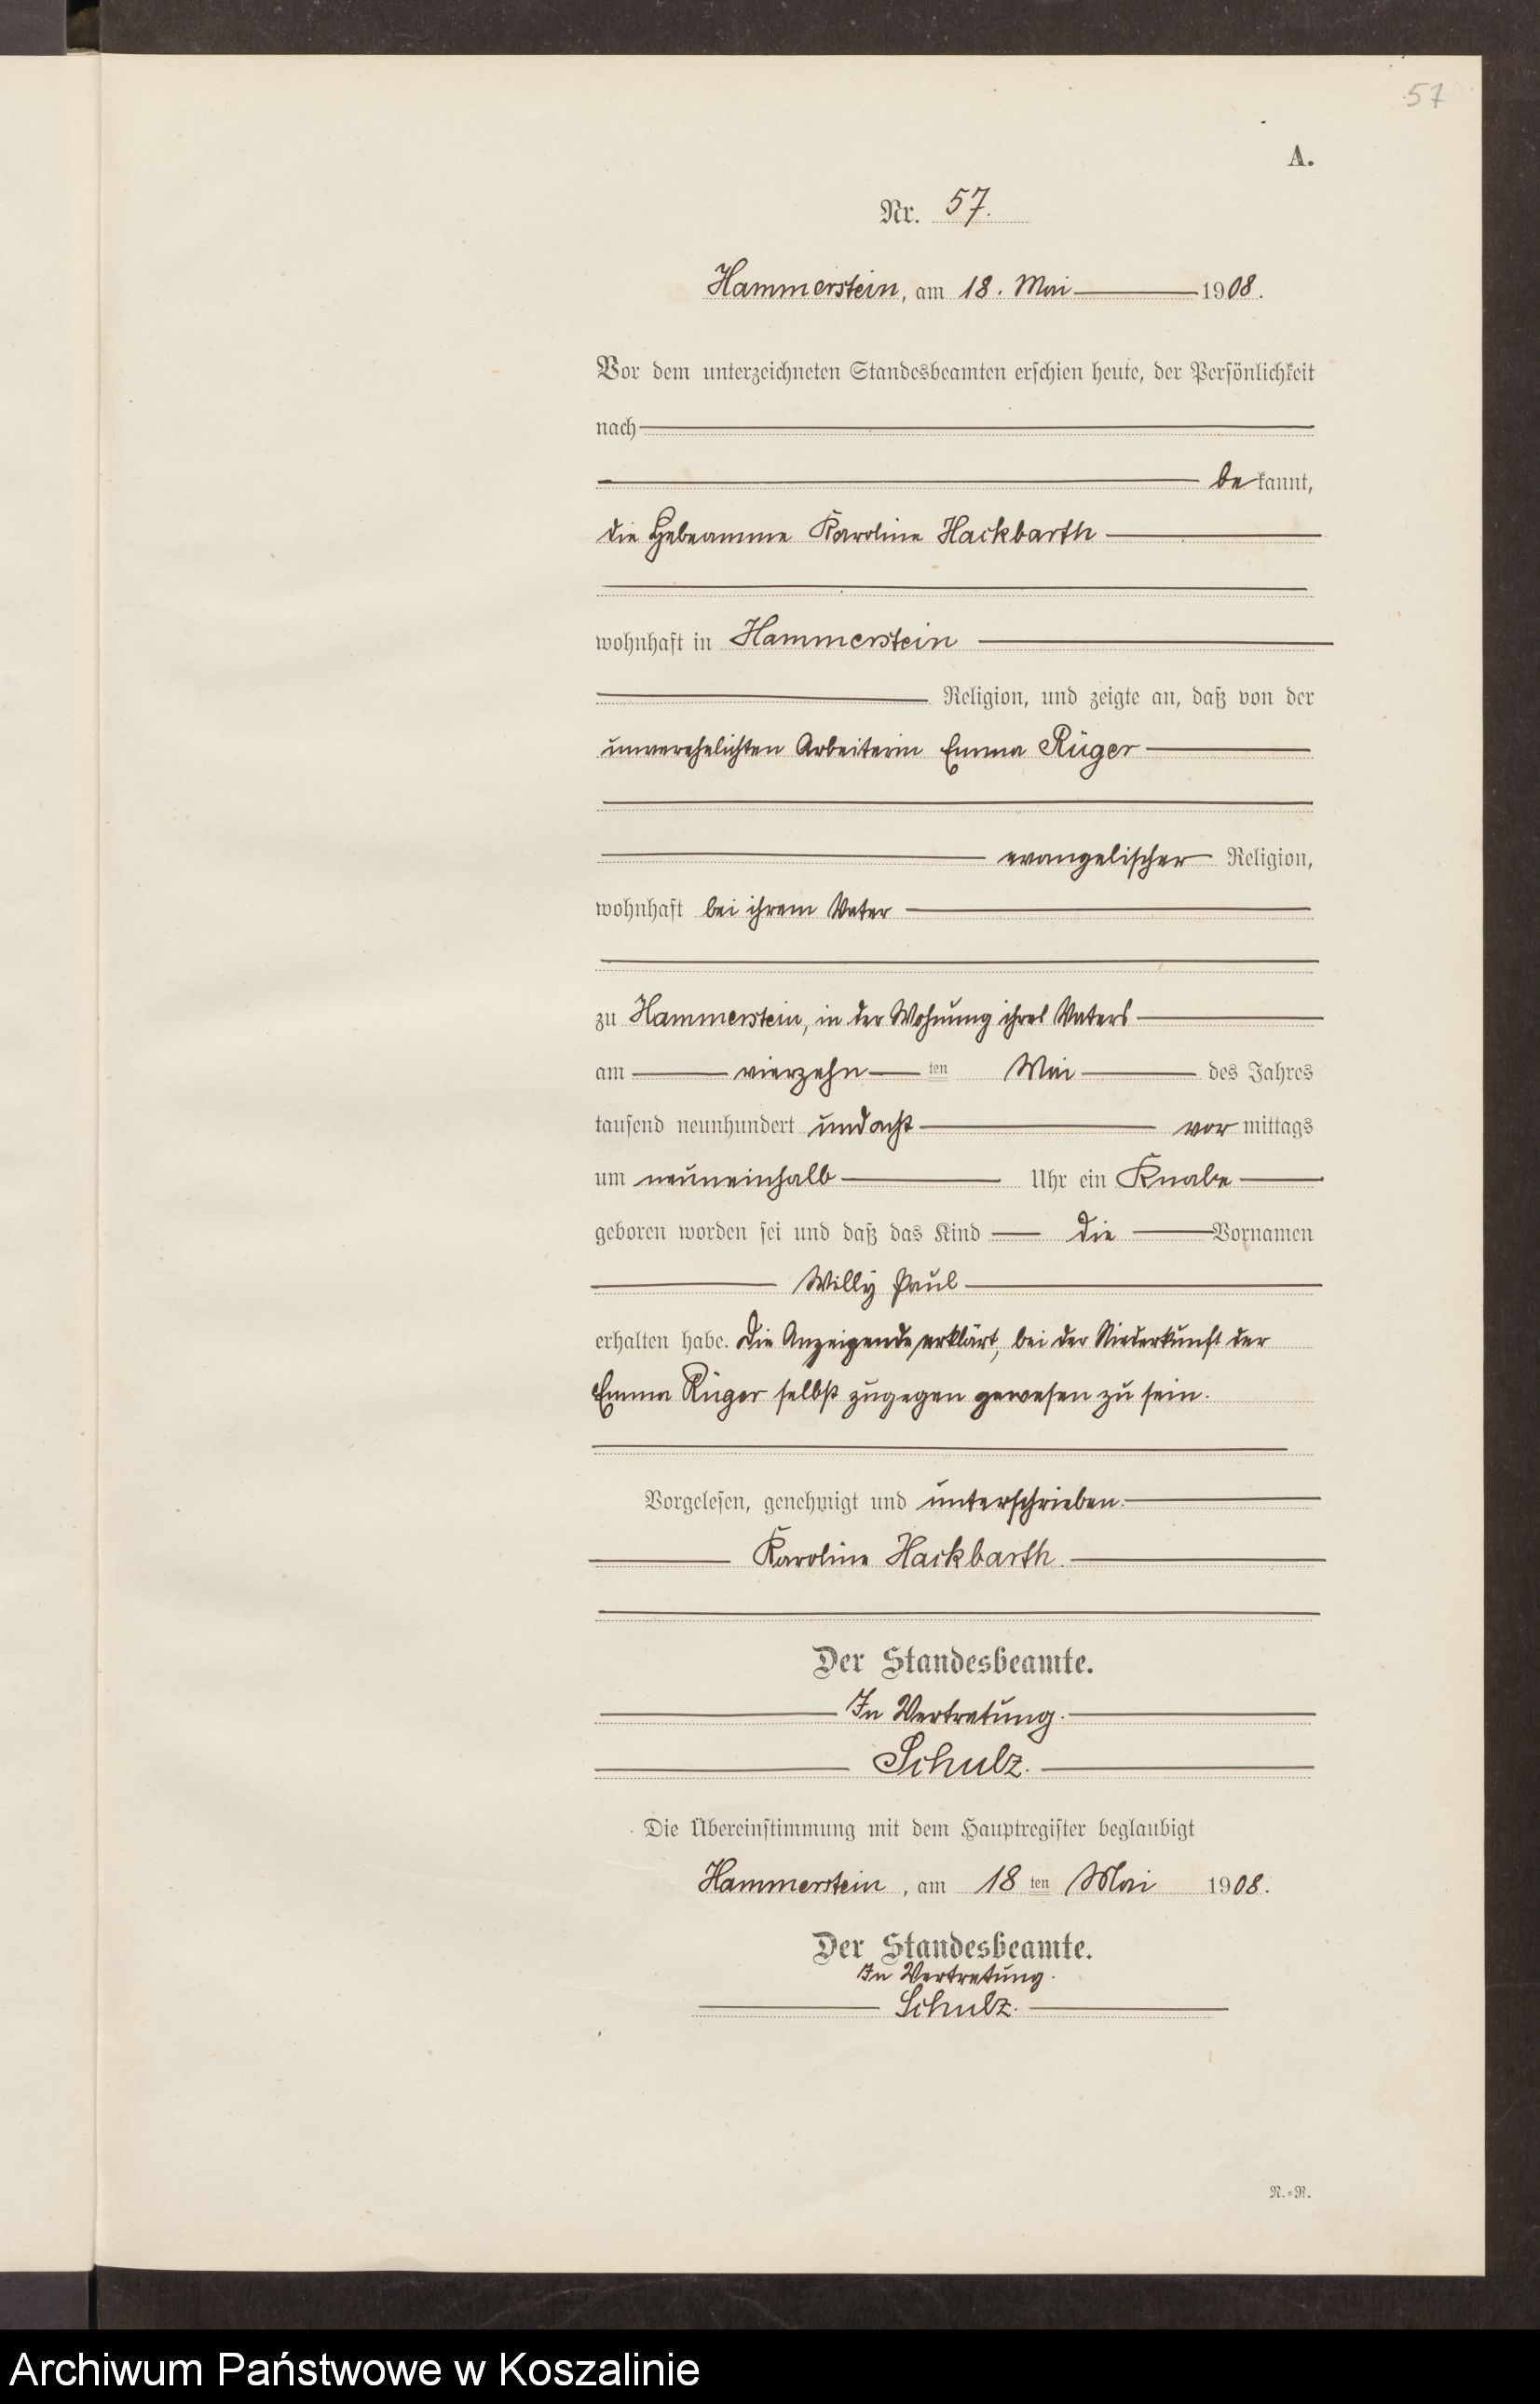 57
A.
Nr. 57.
Hammerstein, am 18. Mai 1908.
Vor dem unterzeichneten Standesbeamten erschien heute, der Persönlichkeit
nach
bekannt,
die Hebeamme Karoline Hackbarth
wohnhaft in Hammerstein
Religion, und zeigte an, daß von der
unverehelichten Arbeiterin Emma Rüger
evangelischer Religion,
wohnhaft bei ihrem Vater
zu Hammerstein, in der Wohnung ihres Vaters
am vierzehn ten Mai des Jahres
tausend neunhundert undacht vormittags
um neuneinhalb Uhr ein Knabe
geboren worden sei und daß das Kind die Vornamen
Willy Paul
erhalten habe. Die Anzeigende erklärt, bei der Niederkunft der
Emma Rüger selbst zugegen gewesen zu sein.
Vorgelesen, genehmigt und unterschrieben.
Karoline Hackbarth.
Der Standesbeamte.
In Vertretung.
Schulz.
Die Übereinstimmung mit dem Hauptregister beglaubigt
Hammerstein, am 18 ten Mai 1908.
Der Standesbeamte.
In Vertretung.
Schulz.
N.=R.
Archiwum Państwowe w Koszalinie